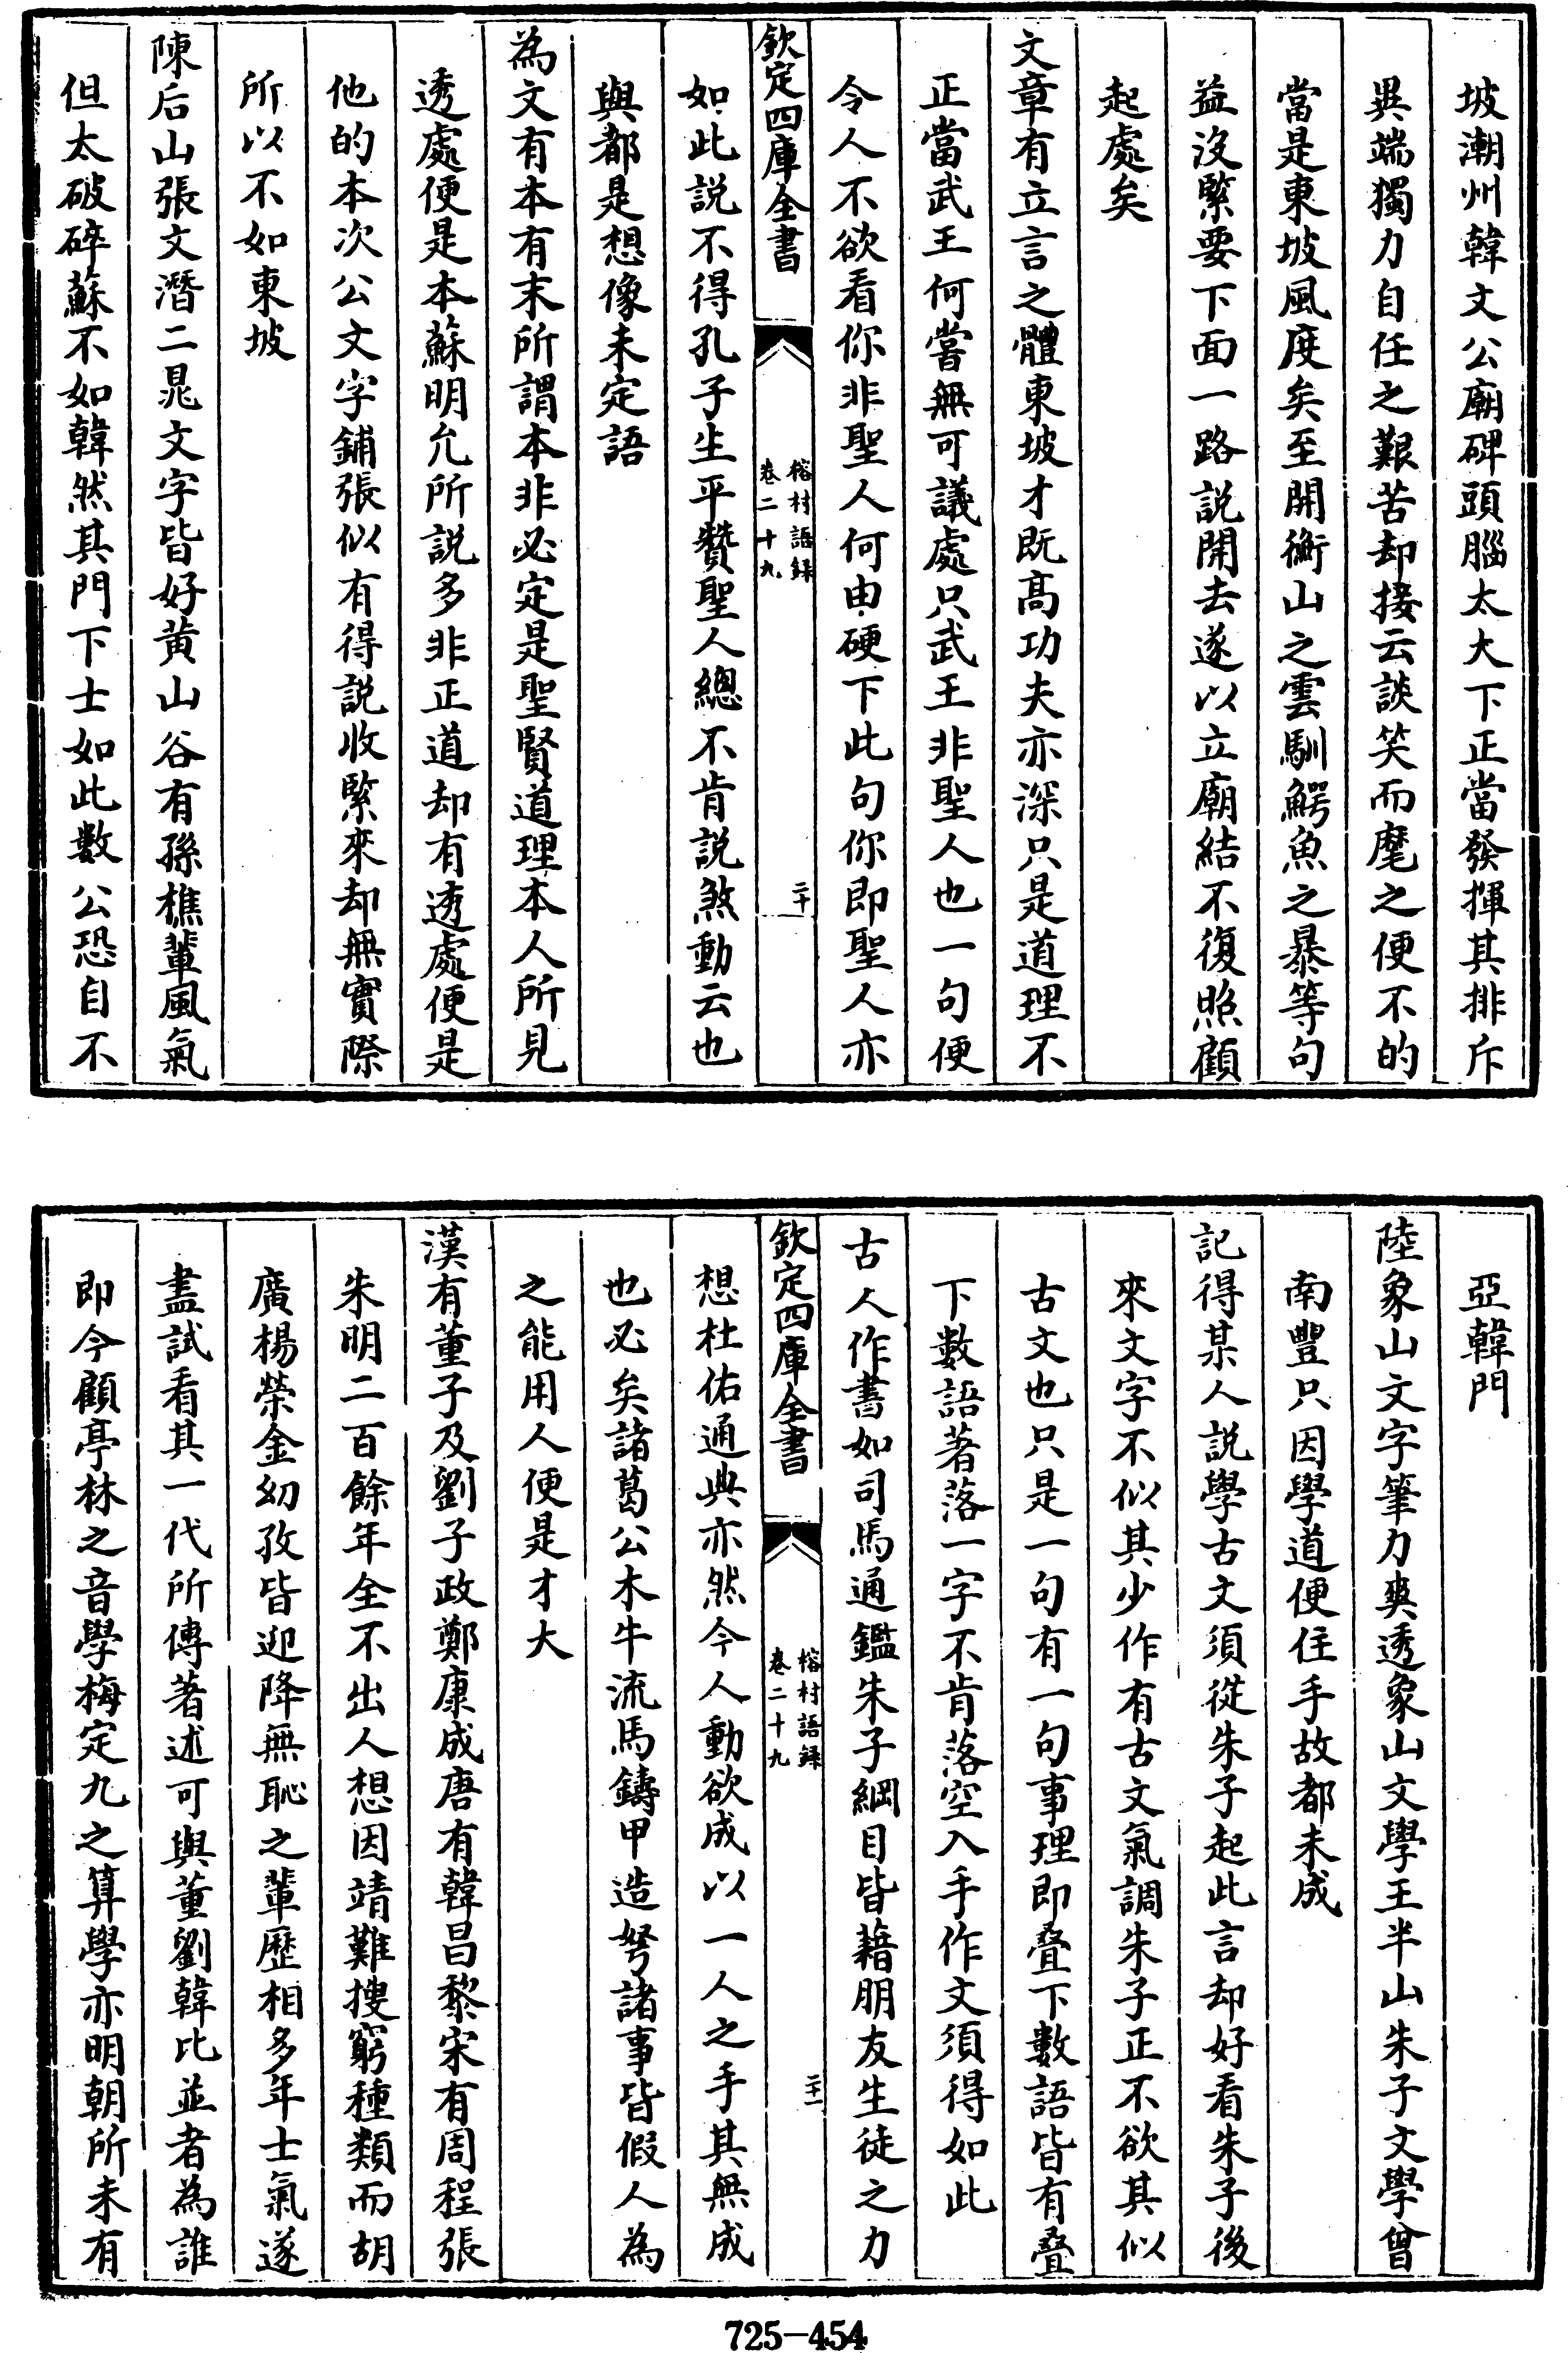 坡潮州韓文公廟碑頭腦太大下正當發揮其排斥
異端獨力自任之艱苦却接云談笑而麾之便不的
當是東坡風度矣至開衡山之雲馴鰐魚之暴等句
益沒緊要下面一路説開去遂以立廟結不復照顧
起處矣
文章有立言之體東坡才既高功夫亦深只是道理不
正當武王何嘗無可議處只武王非聖人也一句便
令人不欲看你非聖人何由硬下此句你即聖人亦
欽定四庫全書
榕村語録
卷二十九
二十
如此説不得孔子生平贊聖人總不肯説煞動云也
與都是想像未定語
為文有本有末所謂本非必定是聖賢道理本人所見
透處便是本蘇明允所説多非正道却有透處便是
他的本次公文字鋪張似有得説收緊來却無實際
所以不如東坡
陳后山張文潛二晁文字皆好黄山谷有孫樵輩風氣
但太破碎蘇不如韓然其門下士如此數公恐自不
亞韓門
陸象山文字筆力爽透象山文學王半山朱子文學曾
南豐只因學道便住手故都未成
記得某人説學古文須從朱子起此言却好看朱子後
來文字不似其少作有古文氣調朱子正不欲其似
古文也只是一句有一句事理即叠下數語皆有叠
下數語著落一字不肯落空入手作文須得如此
古人作書如司馬通鑑朱子綱目皆藉朋友生徒之力
欽定四庫全書
榕村語録
卷二十九
二十一
想杜佑通典亦然今人動欲成以一人之手其無成
也必矣諸葛公木牛流馬鑄甲造弩諸事皆假人為
之能用人便是才大
漢有董子及劉子政鄭康成唐有韓昌黎宋有周程張
朱明二百餘年全不出人想因靖難搜窮種類而胡
廣楊榮金幼孜皆迎降無恥之輩歷相多年士氣遂
盡試看其一代所傳著述可與董劉韓比並者為誰
即今顧亭林之音學梅定九之算學亦明朝所未有
725-454